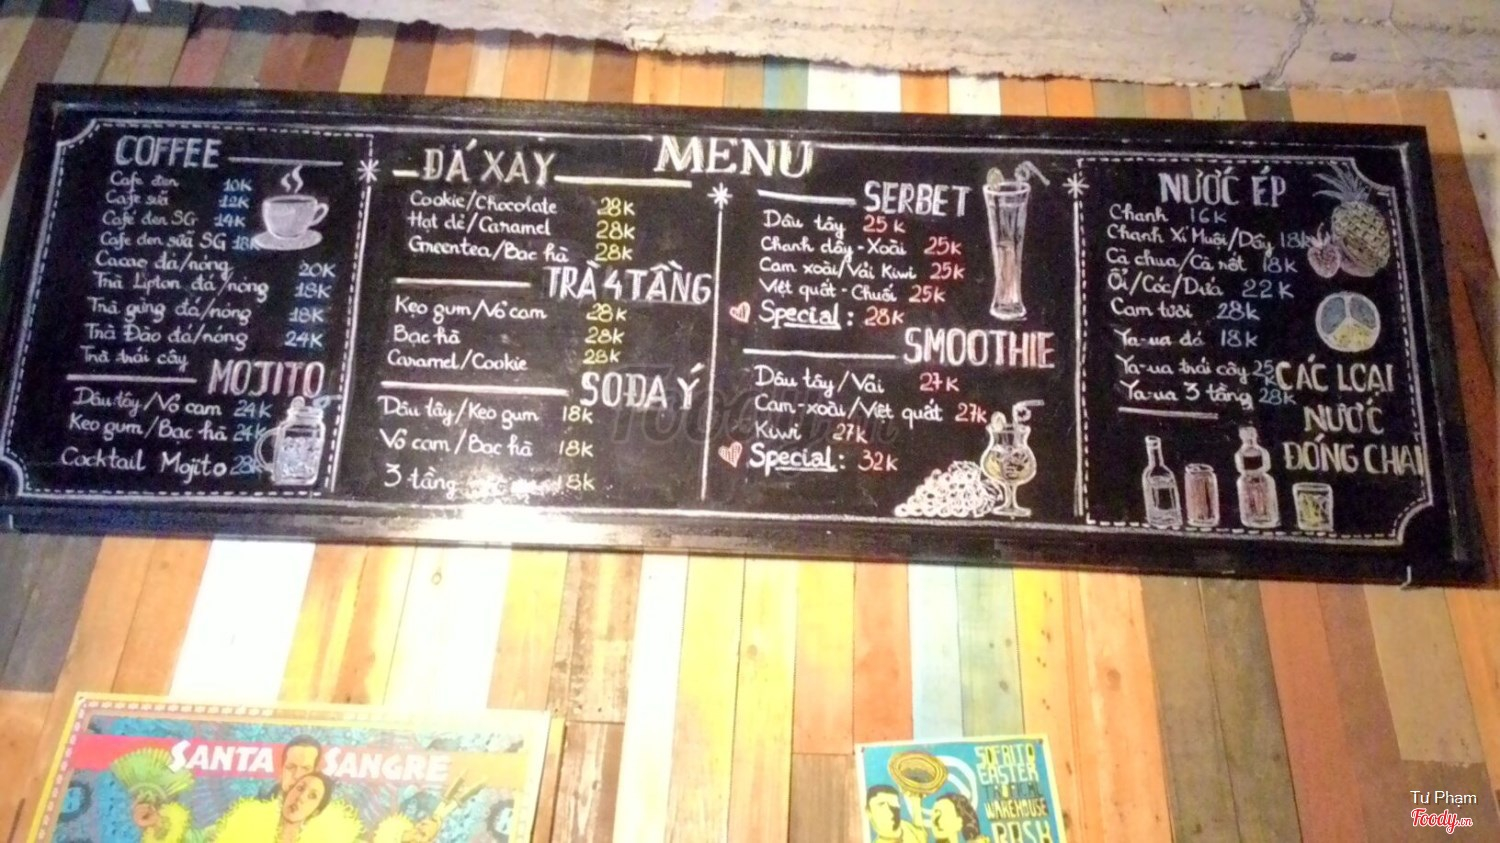 MENU
COFFEE
Cafe đen 10K
Cafe sữa 12K
Café đen SG 14K
Cafe đen sữa SG 18K
Cacao đá/nóng 20K
Trà Lipton đá/nóng 18K
Trà gừng đá/nóng 18K
Trà Đào đá/nóng 24K
Trà trái cây
MOJITO
Dâu tây/Vỏ cam 24K
Keo gum/Bạc hà 24K
Cocktail Mojito 28K
ĐÁ XAY
Cookie/Chocolate 28K
Hạt dẻ/Caramel 28K
Greentea/Bạc hà 28K
TRÀ 4 TẦNG
Kẹo gum/Vỏ cam 28K
Bạc hà 28K
Caramel/Cookie 28K
SOĐA Ý
Dâu tây/Kẹo gum 18K
Vỏ cam/Bạc hà 18K
3 tầng 18K
SERBET
Dâu tây 25K
Chanh dây - Xoài 25K
Cam xoài/Vải Kiwi 25K
Việt quất - Chuối 25K
Special: 28K
SMOOTHIE
Dâu tây/Vải 27K
Cam-xoài/Việt quất 27K
Kiwi 27K
Special: 32K
NƯỚC ÉP
Chanh 16K
Chanh Xí Muội/Dây 18K
Cà chua/Cà rốt 18K
Ổi/Cóc/Dưa 22K
Cam tươi 28K
Ya-ua đá 18K
Ya-ua trái cây 25K
Ya-ua 3 tầng 28K
CÁC LOẠI
NƯỚC
ĐÓNG CHAI
SANTA SANGRE
SOFRITO
EASTER
TROPICAL
WAREHOUSE
BASH
Tư Phạm
Foody.vn